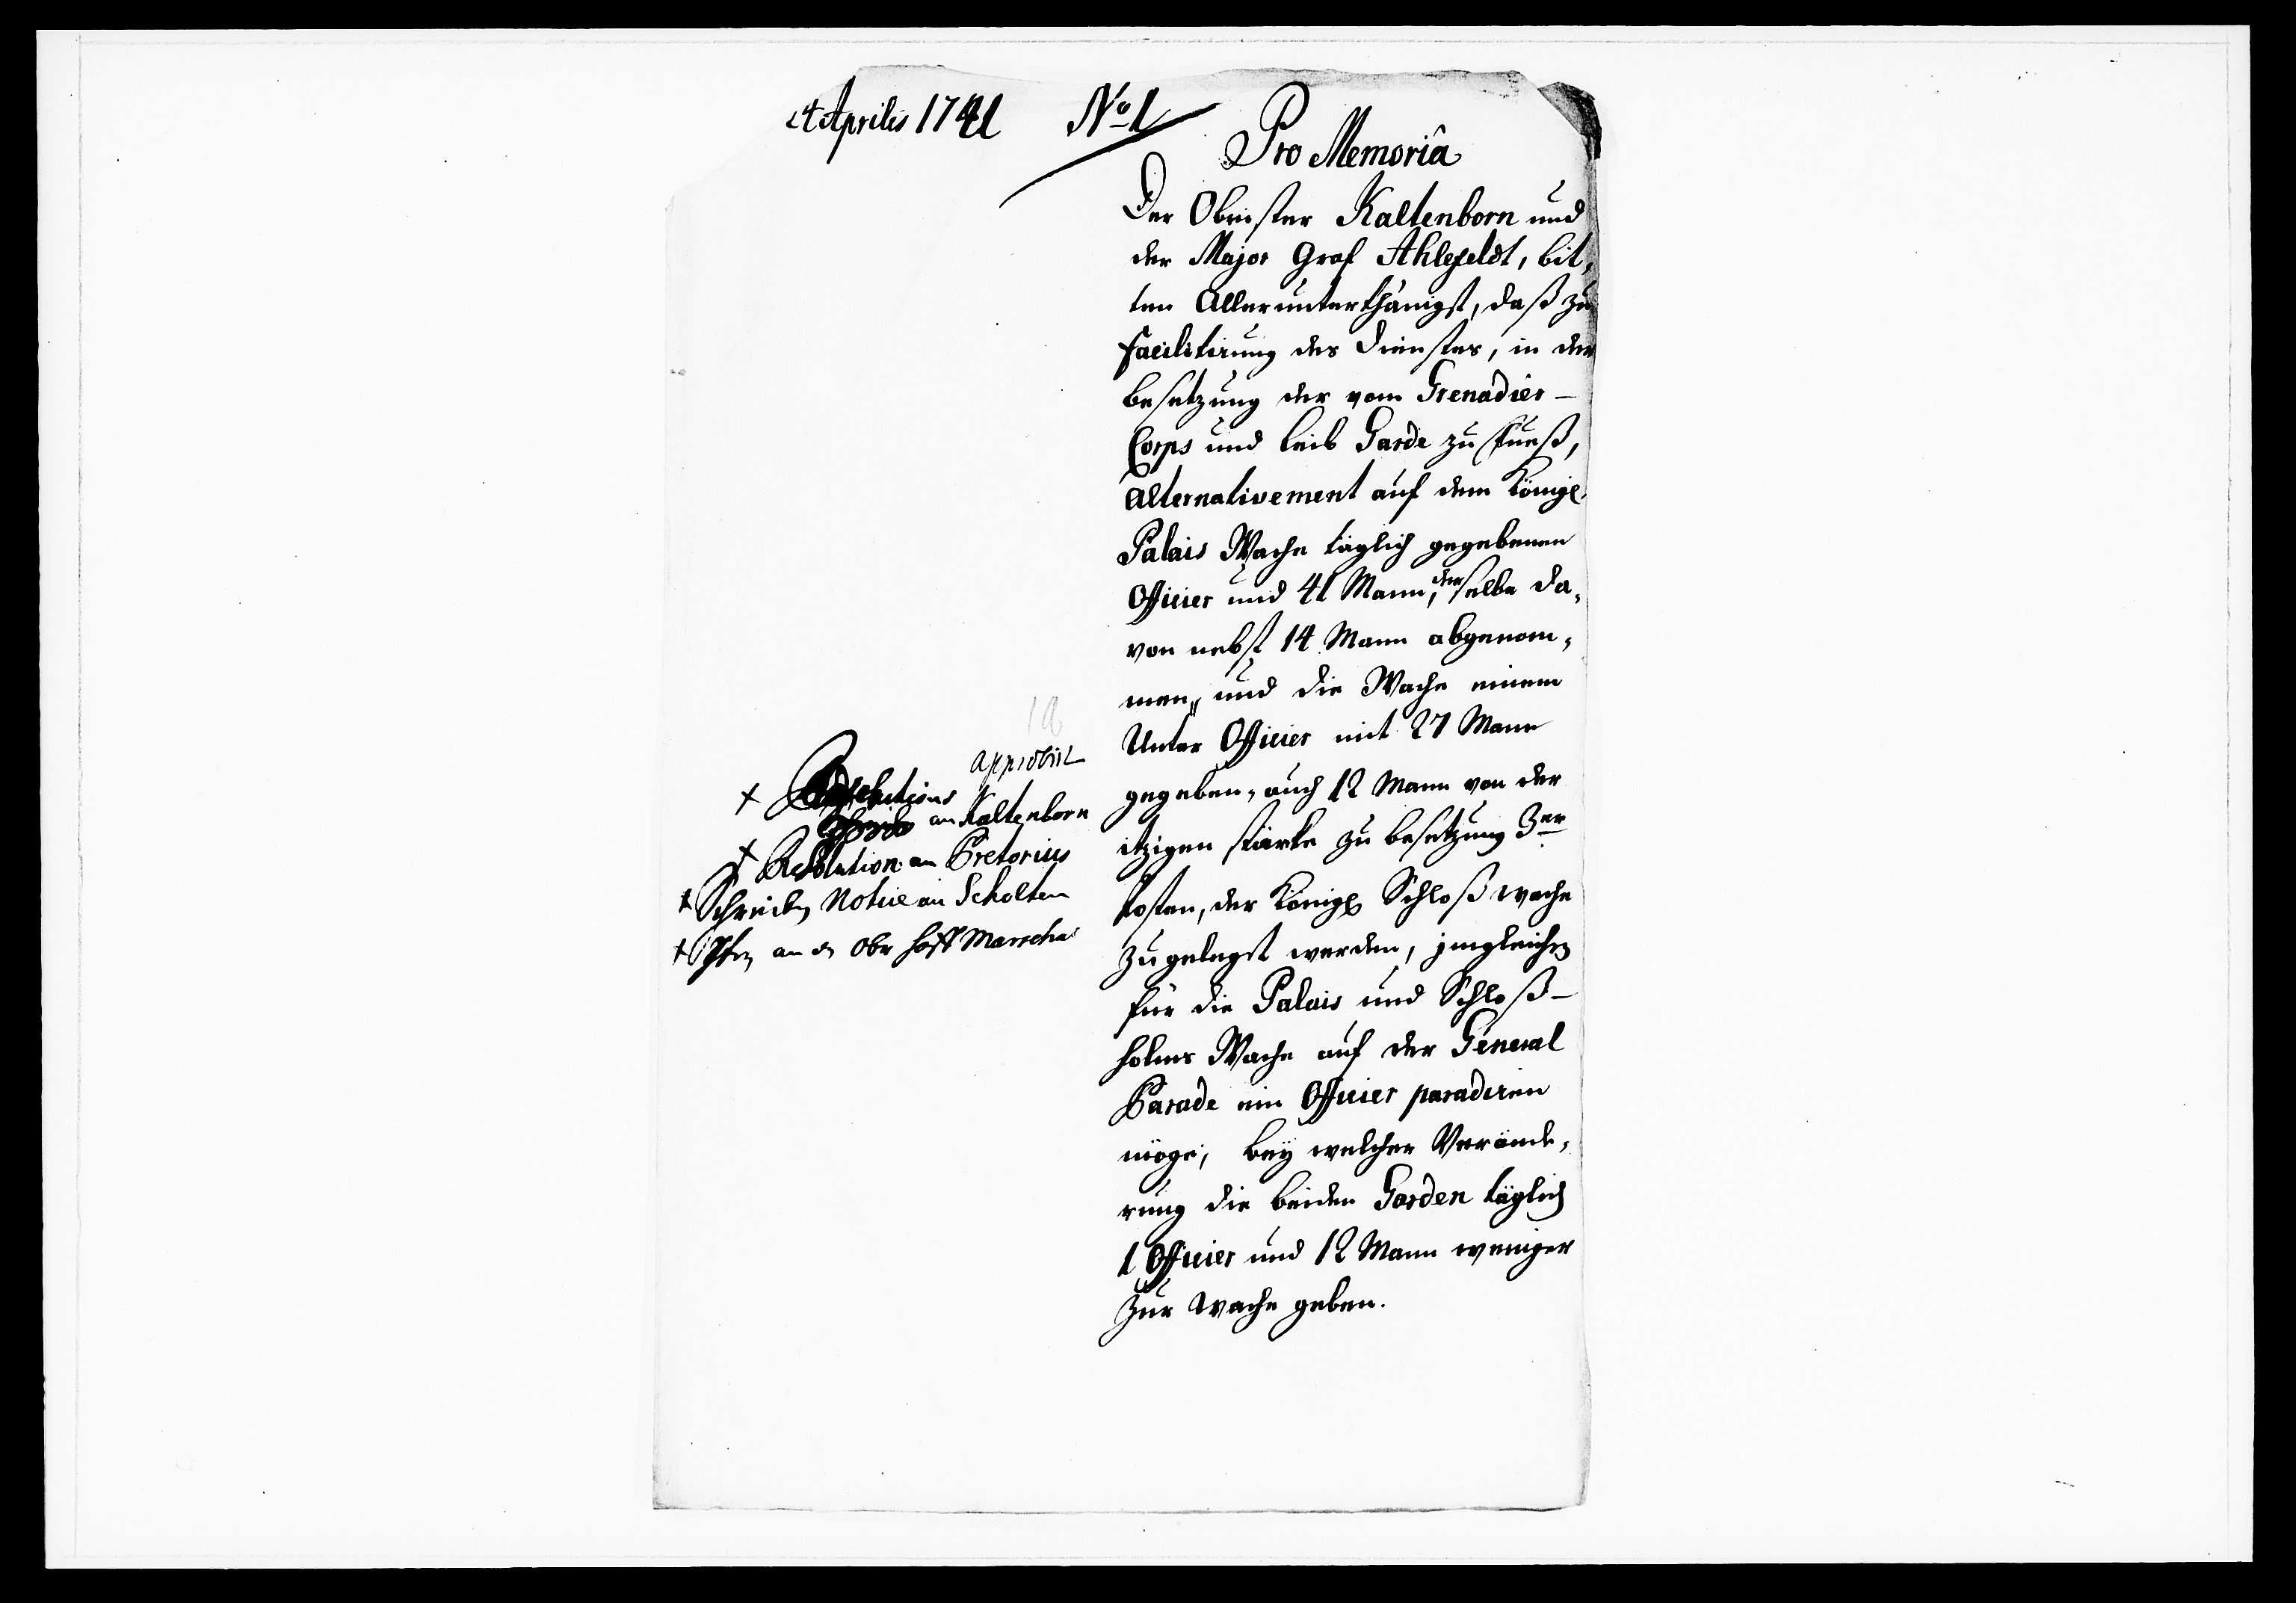 24 Aprilis 1741 No 1
Pro Memoriâ
Der Obrister Kaltenborn und
der Major Graf Ahlefeldt, bit,
ten Allerunterthänigst, daß zu
facilitirung des Dienstes, in der
besetzung der vom Grenadier-
Corps und leib Garde zu Fueß,
Alternativement auf dem Königl.
Palais Wache täglich gegebenen
Officier und 41 Mann, derselbe da,
von nebst 14 Mann abgenom,
men, und die Wache einem
Unter Officier mit 27 Mann
gegeben, auch 12 Mann von der
itzigen stärke zu besetzung 3er
Posten, der Königl Schloß wache
zugelegt werden, jmgleichen
für die Palais und Schloß-
holms Wache auf der General
Parade ein Officier paradiren
möge, bey welcher Verände,
rung die beiden Garden täglich
1 Officier und 12 Mann weniger
zur Wache geben.
approbirt
an Kaltenborn
Resolution an Pretorius
Schreiben Notice an Scholten
an den Obr Hoff Marscha